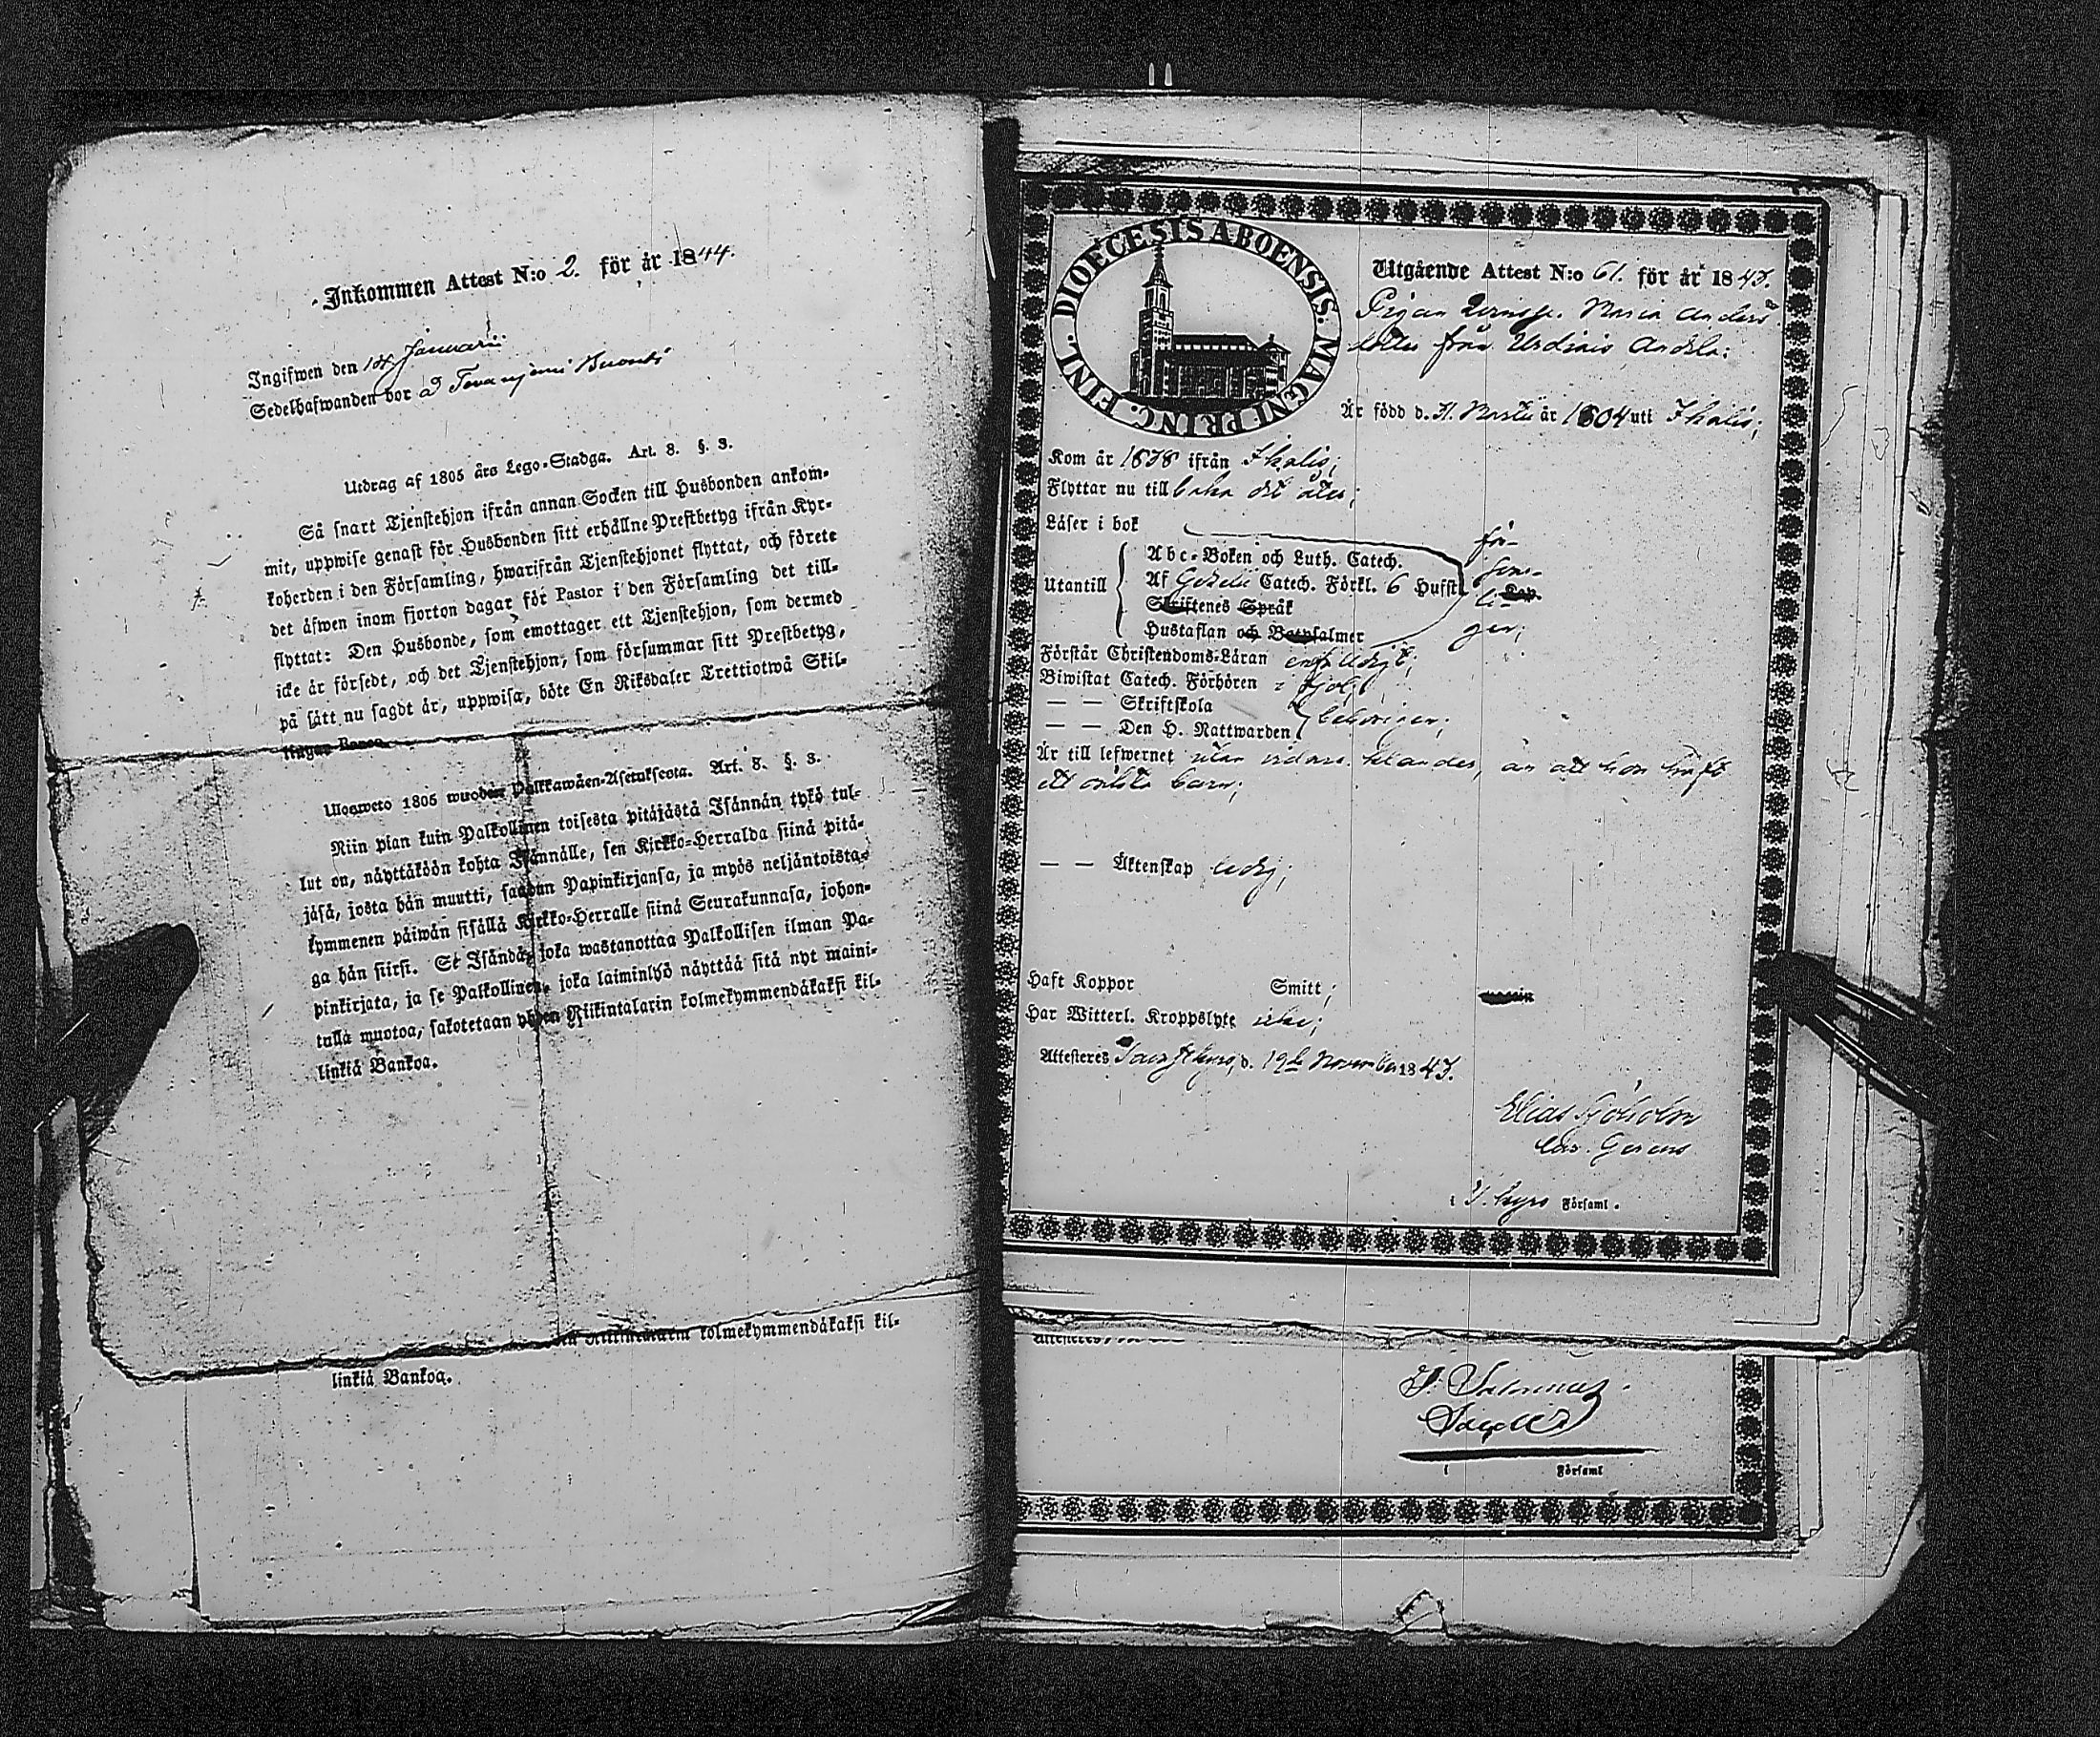 Inkommen Attest N:o 2. för år 1844.
Ingifwen den 14 Januarii
Sedelhafwanden bor å
Utdrag af 1805 års Lego-Stadga. Art. 8. §. 3.
Så snart Tjenstehjon ifrån annan Socken till Husbonden ankom-
mit, uppwise genast för Husbonden sitt erhållne Prestbetyg ifrån Kyr-
koherden i den Församling, hwarifrån Tjenstehjonet flyttat, och förete
det äfwen inom fjorton dagar för Pastor i den Församling det till-
flyttat: Den Husbonde, som emottager ett Tjenstehjon, som dermed
icke är försedt, och det Tjenstehjon, som försummar sitt Prestbetyg,
på sätt nu sagdt är, uppwisa, böte En Riksdaler Trettiotwå Skil-
lingar Banco.
Ulosweto 1805 wuoden Palkkawäen-Asetuksesta. Art. 8. §. 3.
Niin pian kuin Palkollinen toisesta pitäjästä Isännän tykö tul-
lut on, näyttäköön kohta Isännälle, sen Kirkko-Herralda siinä pitä-
jäsä, josta hän muutti, saadun Papinkirjansa, ja myös neljäntoista-
kymmenen päiwän sisällä Kirkko-Herralle siinä Seurakunnasa, johon-
ga hän siirsi. Se Isändä, joka wastanottaa Palkollisen ilman Pa-
pinkirjata, ja se Palkollinen, joka laiminlyö näyttää sitä nyt maini-
tulla muotoa, sakotetaan yhden Riikintalarin kolmekymmendäkaksi kil-
linkiä Bankoa.
kolmekymmendäkaksi kil-
linkiä Bankoa.
DIOECESIS ABOENSIS. MAGNI PRINC. FINL.
Utgående Attest N:o 61. för år 1843.
Pigan Maria Anders
dotter från Andela:
Är född d. 31. Martii år 1804 uti Ikalis;
Kom år 1838 ifrån Ikalis;
Flyttar nu till baka dit åter;
Läser i bok
för-
Abc-Boken och Luth. Catech.
Utantill
Af Gezelii Catech. Förkl. 6 Hufst.
Skriftenes Språk
Hustaflan och Botpsalmer
Förstår Christendoms-Läran enfalldigt;
Biwistat Catech. Förhören i fjol;
— — Skriftskola
— — Den H. Nattwarden behörigen;
Är till lefwernet utan än att hon haft
ett oäkta barn;
— — Äktenskap ledig;
Haft Koppor Smitt;
Har Witterl. Kroppslyte icke;
Attesteres d. 19de November 1843.
Elias Sjöholm
i T. Kyro Församl.
Attesteres
i Församl